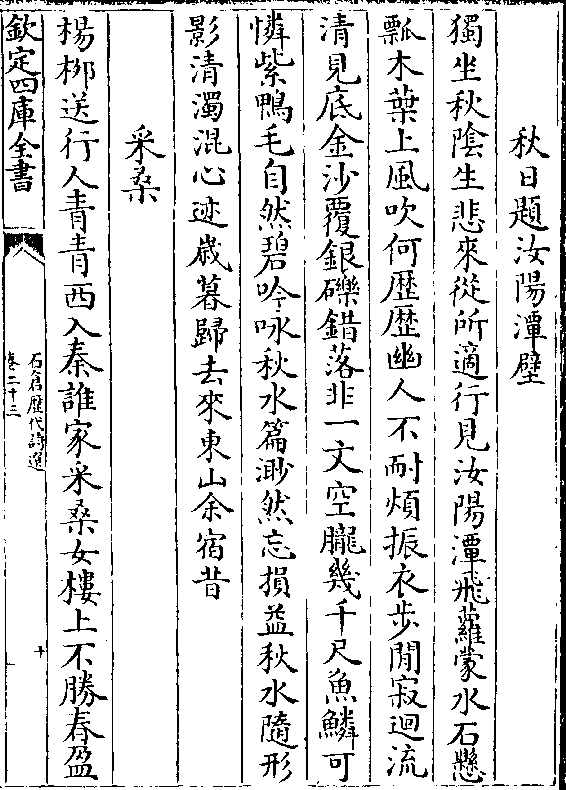 秋日題汝陽潭壁
獨坐秋陰生悲來從所適行見汝陽潭飛蘿蒙水石懸
瓢木葉上風吹何歴歴幽人不耐煩振衣步閒寂迴流
清見底金沙覆銀礫錯落非一文空朧幾千尺魚鱗可
憐紫鴨毛自然碧吟咏秋水篇渺然忘損益秋水隨形
影清濁混心迹歳暮歸去來東山余宿昔
采桑
楊栁送行人青青西入秦誰家采桑女樓上不勝春盈
欽定四庫全書
石倉歴代詩選
卷二十三
十